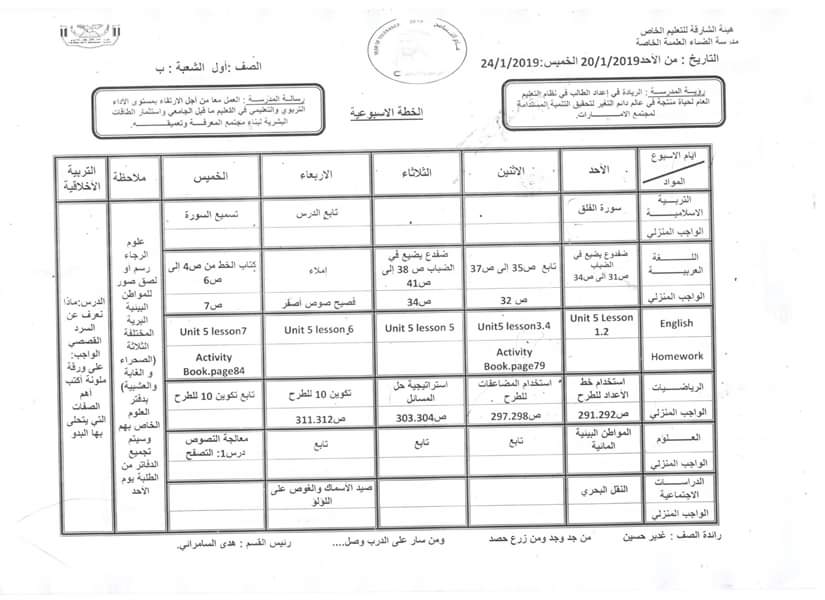 هيئة الشارقة للتعليم الخاص
مدرسة الضياء العلمية الخاصة
التاريخ : من الأحد20/1/2019 الخميس:24/1/2019
الصف :أول الشعبة : ب
رؤية المدرسة : الريادة في إعداد الطالب في نظام التعليم
العام لحياة منتجة في عالم دائم التغير لتحقيق التنمية المستدامة
لمجتمع الامــــــارات.
الخطة الاسبوعية
رسالة المدرسة : العمل معا من أجل الارتقاء بمستوى الاداء
التربوي والتعليمي في التعليم ما قبل الجامعي واستثمار الطاقات
البشرية لبناء مجتمع المعرفة وتعميقـــــه.
ايام الاسبوع
المواد
الأحد
الأثنين
الثلاثاء
الاربعاء
الخميس
ملاحظة
التربية
الأخلاقية
التربية
الاسلاميــة
سورة الفلق
تابع الدرس
تسميع السورة
الواجب المنزلي
اللــــغة
العربية
ضفدوع يضيع في
الضباب
ص31 الى ص34
تابع ص35 الى ص37
ضفدع يضيع في
الضباب ص 38 إلى
ص41
املاء
كتاب الخط من ص4 إلى
ص6
الواجب المنزلي
ص 32
ص34
فصيح صوص أصفر
ص7
English
Unit 5 Lesson
1.2
Unit5 lesson3.4
Unit 5 lesson 5
Unit 5 lesson 6
Unit 5 lesson7
Homework
Activity
Book.page79
Activity
Book.page84
الرياضيـــات
استخدام خط
الأعداد للطرح
استخدام المضاعفات
للطرح
استراتيجية حل
المسائل
تكوين 10 للطرح
تابع تكوين 10 للطرح
الواجب المنزلي
ص291.292
ص297.298
ص303.304
ص311.312
العــــــلوم
المواطن البيئية
المائية
تابع
تابع
تابع
معالجة النصوص
درس1: التصفح
الواجب المنزلي
الدراســات
الاجتماعية
النقل البحري
صيد الأسماك والغوص على
اللؤلؤ
الواجب المنزلي
علوم
الرجاء
رسم او
لصق صور
للمواطن
البيئية
البرية
المختلفة
الثلاثة
(الصحراء
و الغابة
والعشبية)
بدفتر
العلوم
الخاص بهم
وسيتم
تجميع
الدفاتر من
الطلبة يوم
الأحد
الدرس:ماذا
نعرف عن
السرد
القصصي
الواجب:
على ورقة
ملونة أكتب
اهم
الصفات
التي يتحلى
بها البدو
رائدة الصف : غدير حسين من جد وجد ومن زرع حصد ومن سار على الدرب وصل.... رئيس القسم : هدى السامرائي.